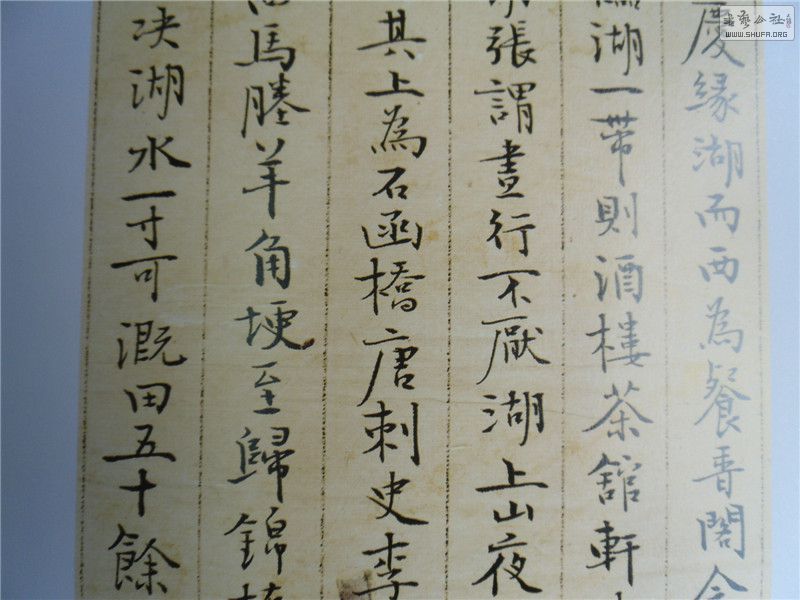 慶緣湖而西為餐香閣今
湖一帶則酒樓茶舘軒
張謂晝行不厭湖上山夜
其上為石函橋唐刺史李
馬塍羊角埂至歸錦
決湖水一寸可溉田五十餘
书艺公社
WWW.SHUFA.ORG